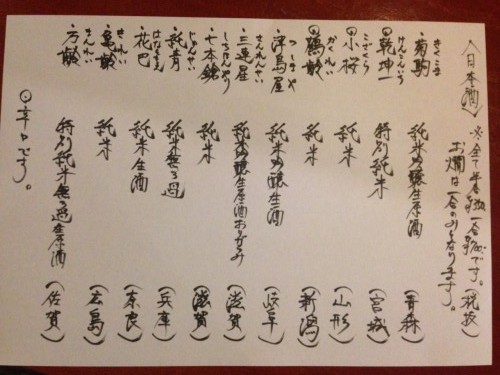 〈日本酒〉※全て半合 一合 です。(税抜)
お燗は一合のみとなります。
きくこま
・菊駒 純米吟醸生原酒 (青森)
けんこんいち
⦿乾坤一 特別純米 (宮城)
こざくら
・小桜 純米 (山形)
かくれい
⦿鶴齢 純米 (新潟)
つしまや
・津島屋 純米吟醸生酒 (岐阜)
さんれんせい
・三連星 純米吟醸生原酒おりがらみ (滋賀)
しちほんやり
・七本鎗 純米 (滋賀)
・純青 純米無ろ過 (兵庫)
はなともえ
・花巴 純米生酒 (奈良)
きれい
・亀齢 純米 (広島)
まんれい
・万齢 特別純米無ろ過生原酒 (佐賀)
⦿辛口です。